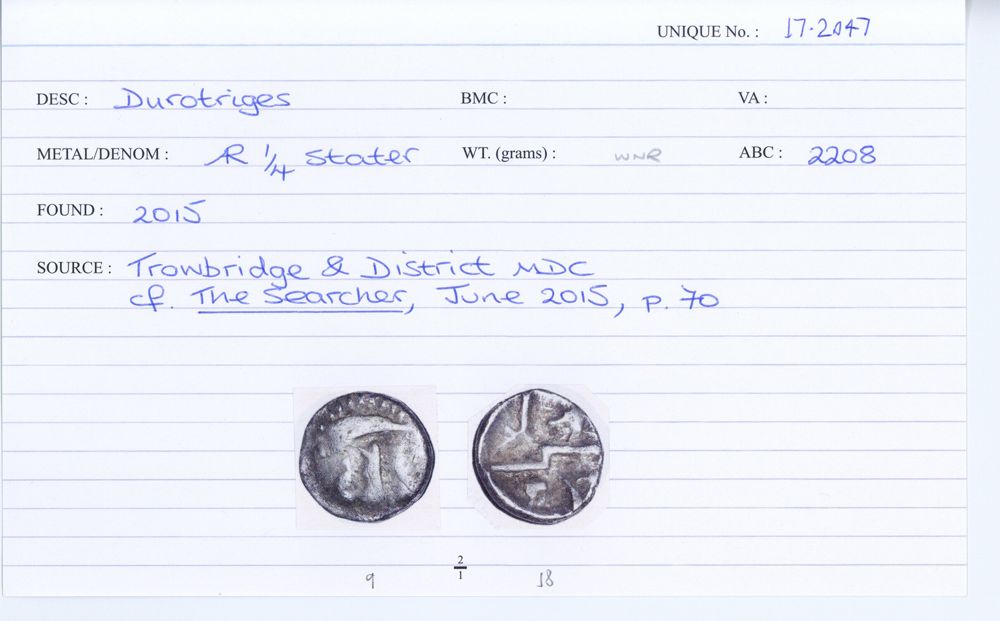 UNIQUE No. : 17.2047
DESC : Durotriges BMC : VA :
METAL/DENOM : AR 1/4 Stater WT. (grams) : WNR ABC : 2208
FOUND : 2015
SOURCE : Trowbridge & District MDC
cf. The Searcher, June 2015, p. 70
2/1
9 18